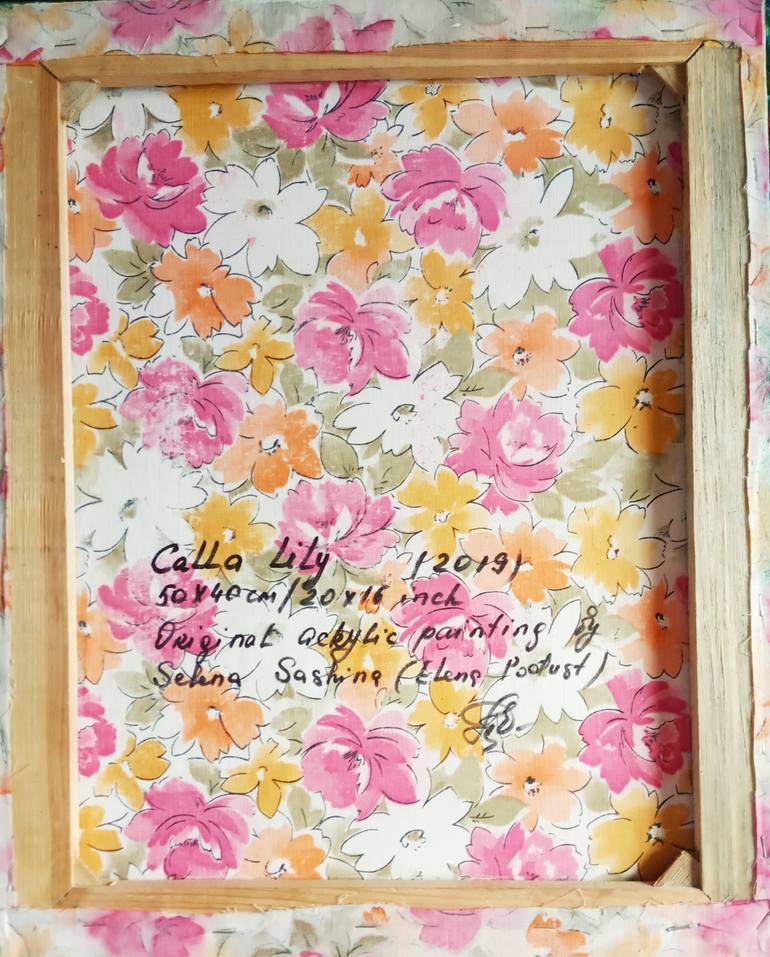 Calla Lily (2019)
50x40cm/20x16 inch
Original ackylic painting by
Selena Sashina (Elena Podust)